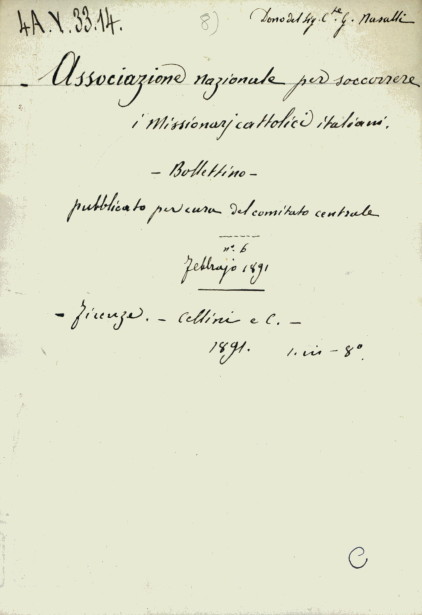 4A.Y.33.14.
8)
Dono del Sig. C.te G. Nasalli
- Associazione nazionale per soccorrere
i Missionarj cattolici italiani.
- Bollettino -
pubblicato per cura del comitato centrale
n.º 6
Febbrajo 1891
- Firenze. - Cellini e C. -
1891. 1. in - 8º.
C